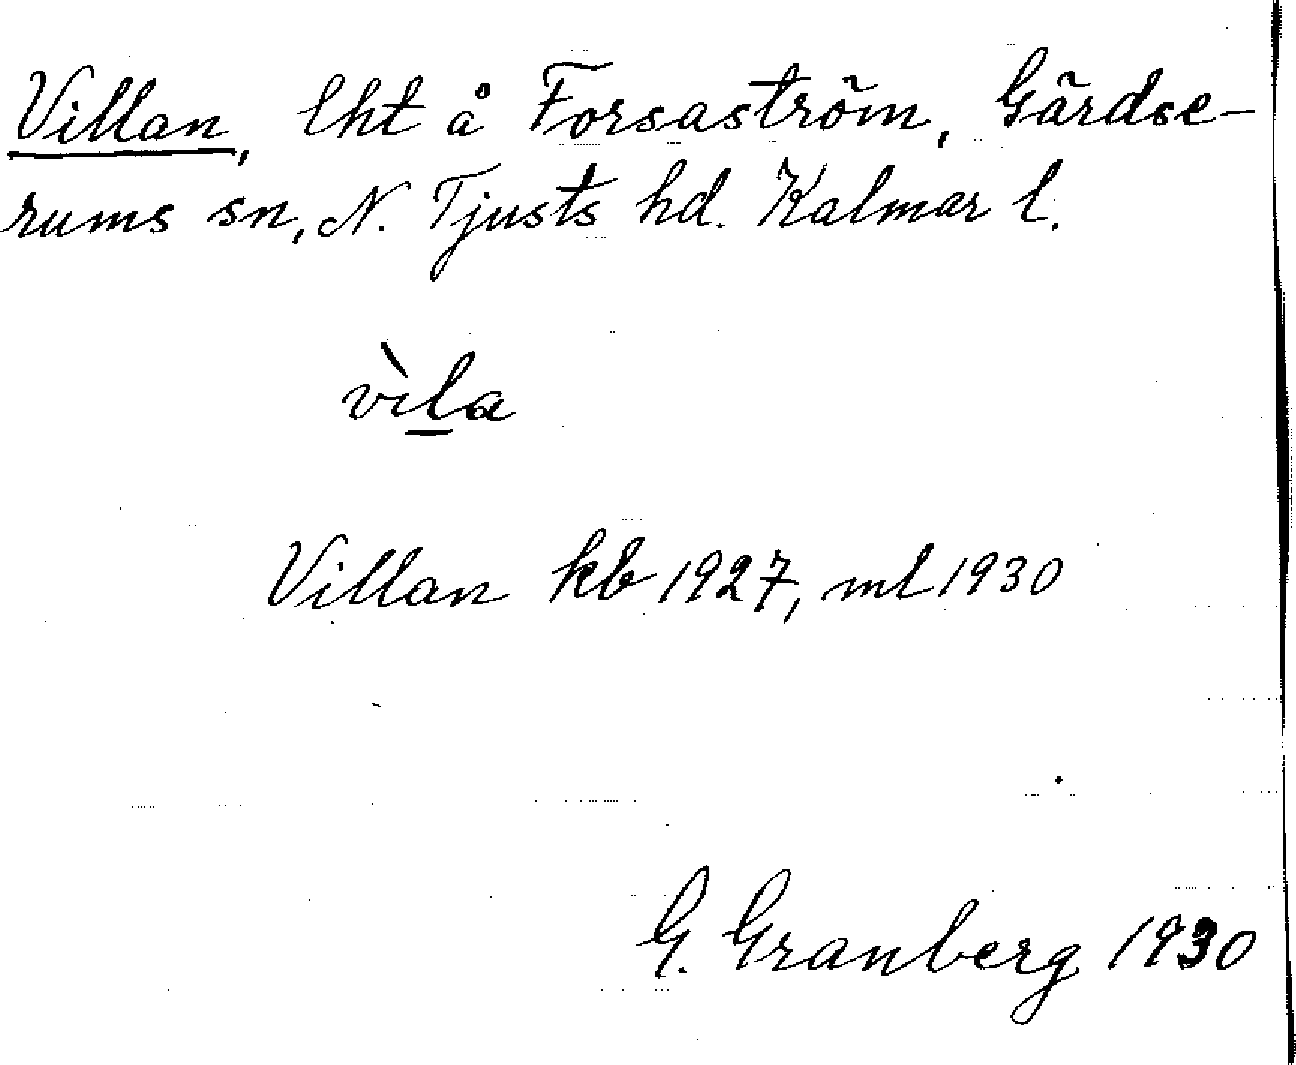 Villan, lht å Forsaström, Gärdse-
rums sn, N. Tjusts hd. Kalmar l.
vìla
Villan kb 1927, ml 1930
G. Granberg 1930